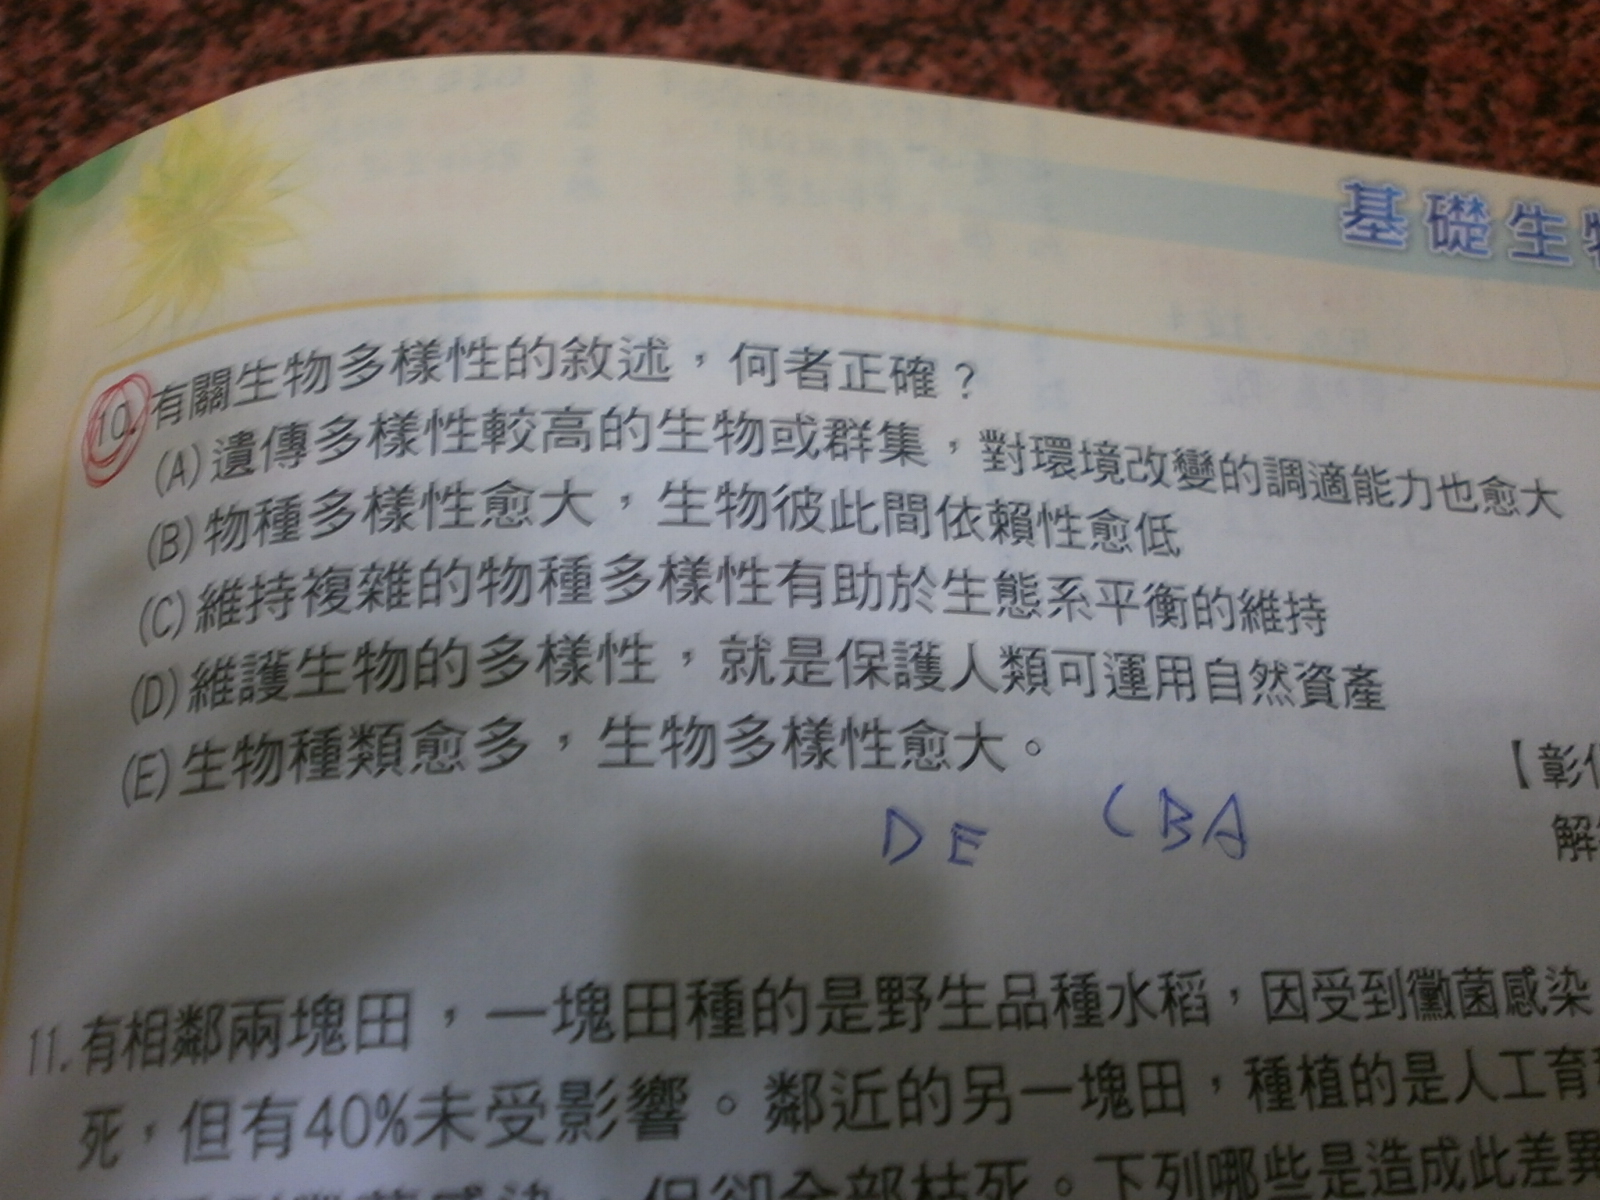 基礎生
10.有關生物多樣性的敘述，何者正確？
(A)遺傳多樣性較高的生物或群集，對環境改變的調適能力也愈大
(B)物種多樣性愈大，生物彼此間依賴性愈低
(C)維持複雜的物種多樣性有助於生態系平衡的維持
(D)維護生物的多樣性，就是保護人類可運用自然資產
(E)生物種類愈多，生物多樣性愈大。
【彰
解
DE CBA
11.有相鄰兩塊田，一塊田種的是野生品種水稻，因受到黴菌感染
死，但有40%未受影響。鄰近的另一塊田，種植的是人工育
下列哪些是造成此差異